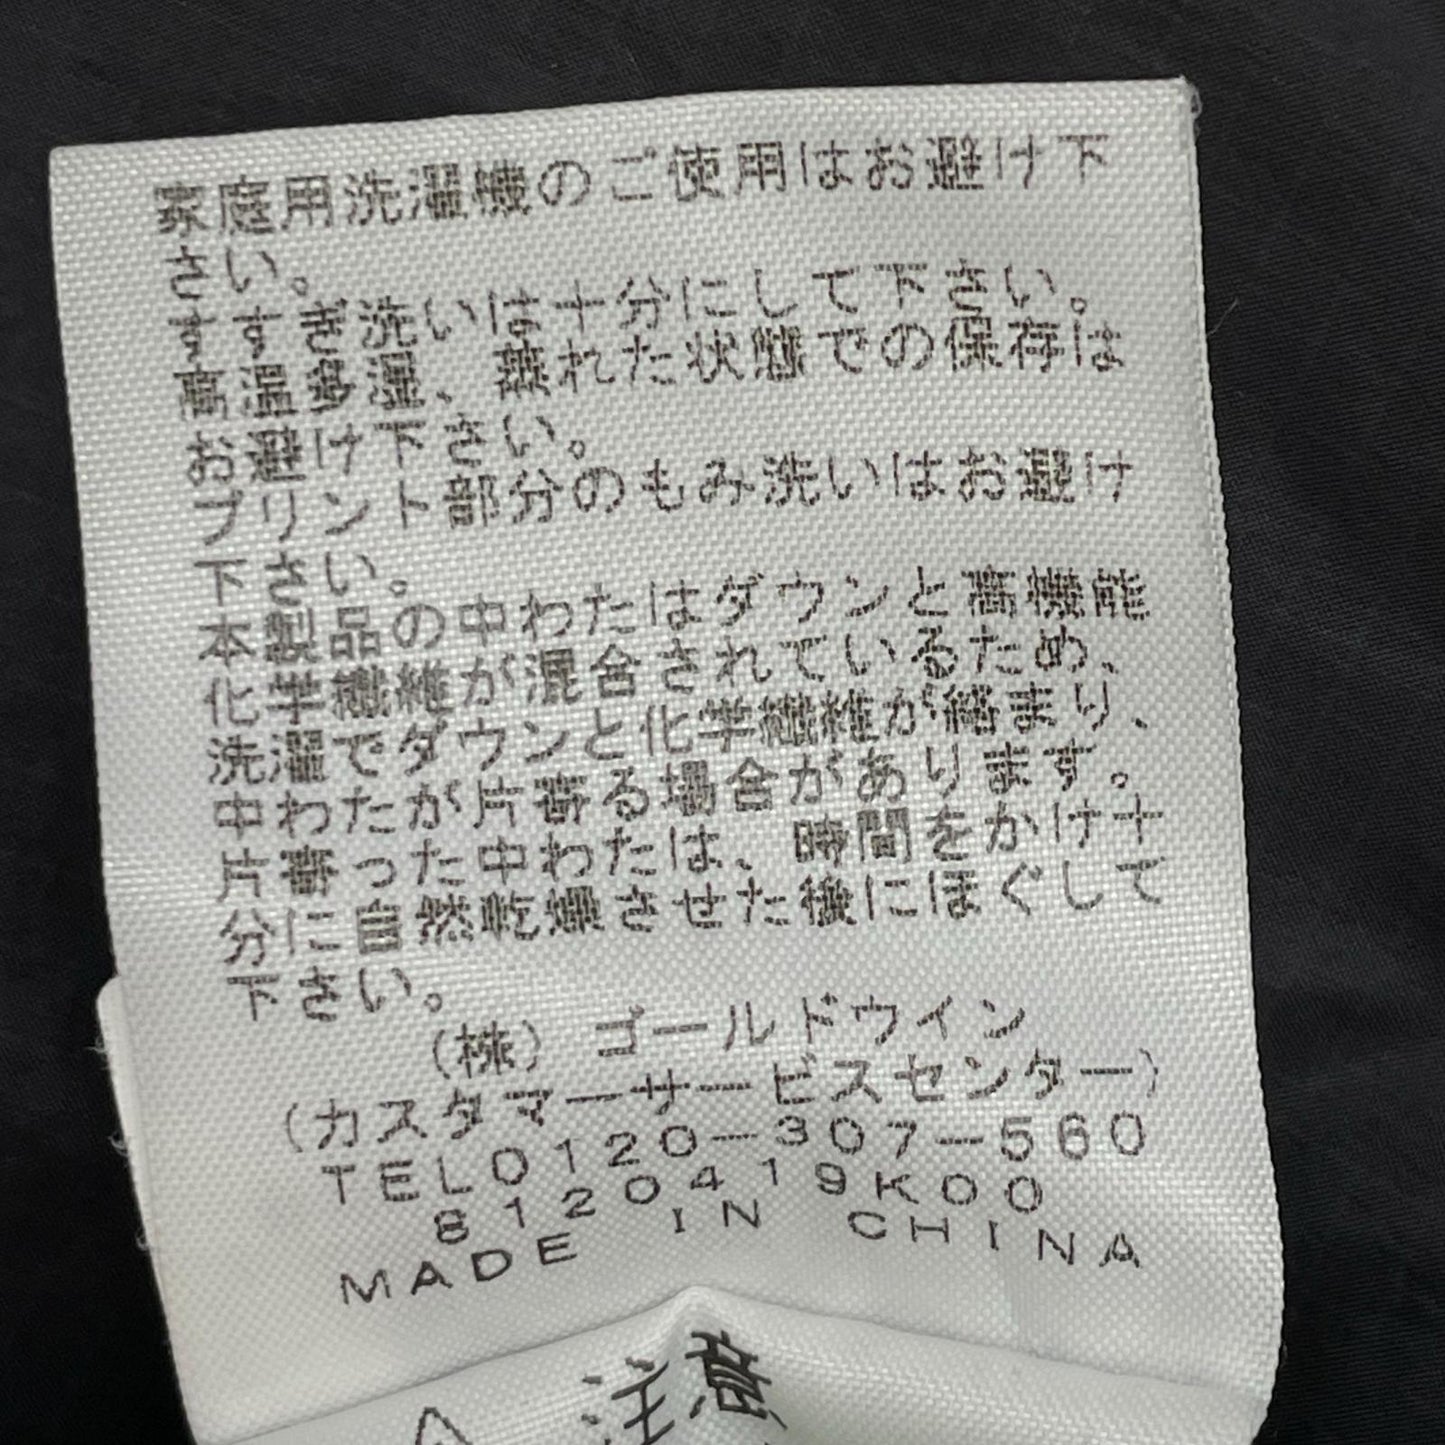 家庭用洗濯機のご使用はお避け下
さい。
すすぎ洗いは十分にして下さい。
高温多湿、蒸れた状態での保存は
お避け下さい。
プリント部分のもみ洗いはお避け
下さい。
本製品の中わたはダウンと高機能
化学繊維が混合されているため、
洗濯でダウンと化学繊維が絡まり、
中わたが片寄る場合があります。
片寄った中わたは、時間をかけ十
分に自然乾燥させた後にほぐして
下さい。
(株)ゴールドウイン
(カスタマーサービスセンター)
TEL0120-307-560
8120419K00
MADE IN CHINA
注意